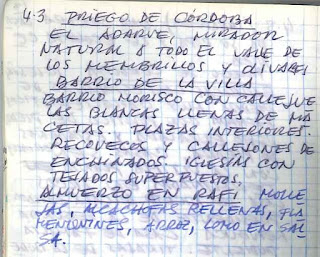 4-3 PRIEGO DE CÓRDOBA
EL ADARVE, MIRADOR
NATURAL A TODO EL VALLE DE
LOS MEMBRILLOS Y OLIVARE
BARRIO DE LA VILLA
BARRIO MORISCO CON CALLEJUE
LAS BLANCAS LLENAS DE MA
CETAS. PLAZAS INTERIORES.
RECOVECOS Y CALLEJONES DE
ENCHINADOS. IGLESIAS CON
TEJADOS SUPERPUESTOS.
ALMUERZO EN RAFI MOLLE
JAS, ALCACHOFAS RELLENAS, FLA
MENQUINES, ARROZ, LOMO EN SAL
SA.